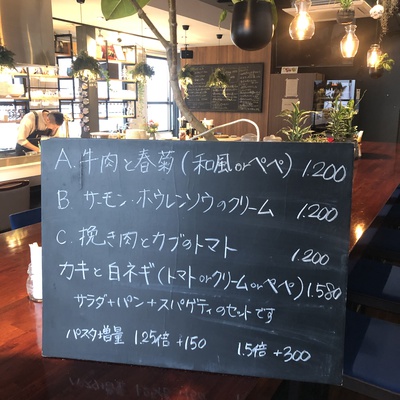 A. 牛肉と春菊(和風orペペ) 1.200
B. サーモン・ホウレンソウのクリーム 1.200
C. 挽き肉とカブのトマト 1.200
カキと白ネギ(トマトorクリームorペペ) 1.580
サラダ+パン+スパゲティのセットです
パスタ増量 1.25倍 +150 1.5倍 +300